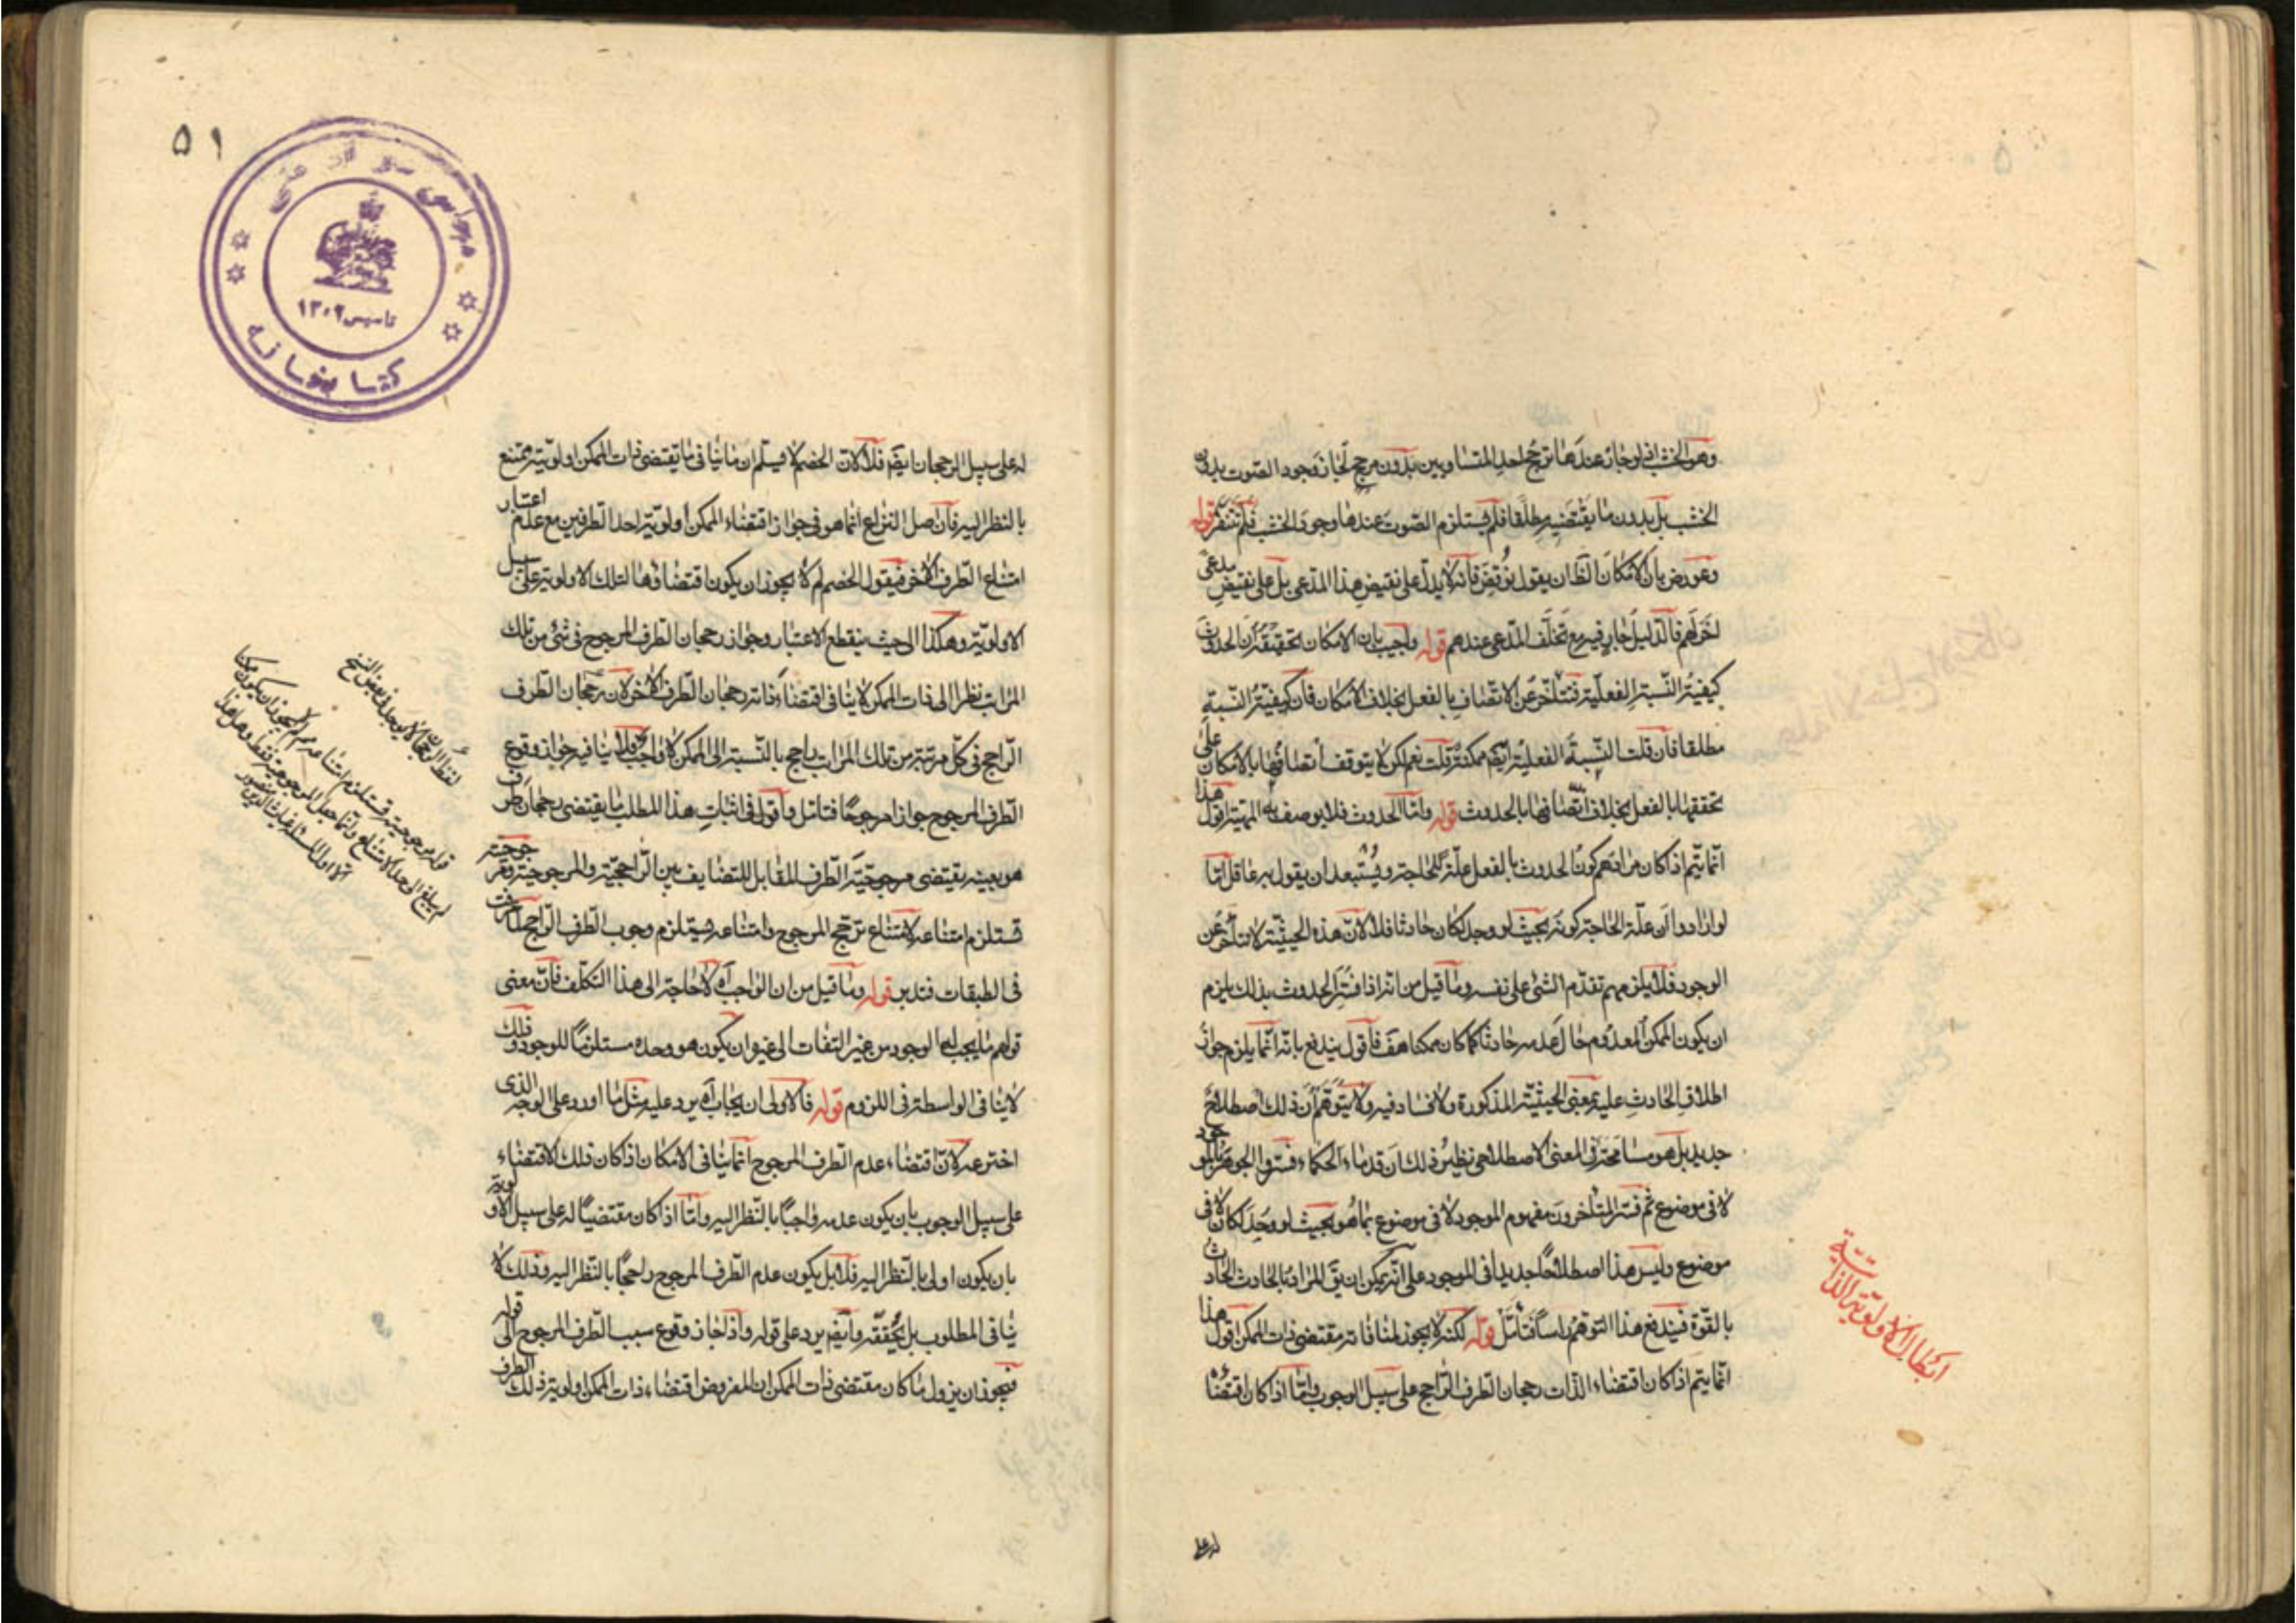 وهو الخشب اذ لو جاز عندها ترجح احد المتساويين بدون مرجح لجاز وجود الصوت بدون
الخشب بل بدون ما يقتضيه مطلقا فلم يستلزم الصوت عندها وجود الخشب فلم تنفر قوله
وعورض بان الامكان الظ ان يقول نوقض فانه لا يدل على نقيض هذا المدعى بل على نقيض مدعى
اخر لهم فالدليل جار فيه مع تخلف المدعى عندهم قوله واجيب بان الامكان تحققه ان الحدوث
كيفية النسبة الفعلية فتتاخر عن الاتصاف بالفعل بخلاف الامكان فان كيفية النسبة
مطلقا فان قلت النسبة الفعلية ايضا ممكنة قلت نعم لكن لا يتوقف اتصافها بالامكان على
تحققها بالفعل بخلاف اتصافها بالحدوث قوله واما الحدوث فلا يوصف به المهية اقول هذا
انما يتم اذا كان مرادهم كون الحدوث بالفعل علة للحاجة ويستبعد ان يقول به عاقل اما
لو ارادوا ان علة الحاجة كونه بحيث لو وجد لكان حادثا فلا لان هذه الحيثية لا تتاخر عن
الوجود فلا يلزمهم تقدم الشئ على نفسه وما قيل من انه اذا فسر الحدوث بذلك يلزم
ان يكون الممكن المعدوم حال عدمه حادثا كما كان ممكنا هف فاقول يندفع بانه انما يلزم جواز
اطلاق الحادث عليه بمعنى الحيثية المذكورة ولا فساد فيه ولا يتوهم ان ذلك اصطلاح
جديد بل هو مسامحة في المعنى الاصطلاحي نظير ذلك ان قدماء الحكماء فسروا الجوهر بالموجود
لا في موضوع ثم فسر المتاخرون مفهوم الموجود لا في موضوع بما هو بحيث لو وجد لكان لا في
موضوع وليس هذا اصطلاحا جديدا في الموجود على انه يمكن ان يق المراد بالحادث الحادث
بالقوة فيندفع هذا التوهم راسا فتامل قوله لكنه لا يجوز لمنافاته مقتضى ذات الممكن اقول هذا
انما يتم اذا كان اقتضاء الذات رجحان الطرف الراجح على سبيل الوجوب واما اذا كان اقتضائه
ابطال الاولوية الذاتية
له على
٥١
كتابخانه
تاسيس ١٣٠٢
له على سبيل الرجحان ايضا فلا لان الخصم لا يسلم ان ما ينافى ما يقتضى ذات الممكن اولويته ممتنع
بالنظر اليه فان اصل النزاع انما هو في جواز اقتضاء الممكن اولوية احد الطرفين مع عدم اعتبار
امتناع الطرف الاخر فيقول الخصم لم لا يجوز ان يكون اقتضاؤها لتلك الاولوية على سبيل
الاولوية وهكذا الى حيث ينقطع الاعتبار وجواز رجحان الطرف المرجوح في شئ من تلك
المراتب نظرا الى ذات الممكن لا ينافى اقتضاء ذاته رجحان الطرف الاخر لان رجحان الطرف
الراجح في كل مرتبة من تلك المراتب راجح بالنسبة الى الممكن لا واجب فلا ينافيه جواز وقوع
الطرف المرجوح جوازا مرجوحا فتامل واقول في اثبات هذا المطلب ما يقتضى رجحان طرف
هو بعينه يقتضى مرجوحية الطرف المقابل للتضايف بين الراجحية والمرجوحية ومرجوحيته
تستلزم امتناعه لامتناع ترجح المرجوح وامتناعه يستلزم وجوب الطرف الراجح لما عرفت
في الطبقات فتدبر قوله وما قيل من ان الواجب آه لا حاجة الى هذا التكلف فان معنى
قولهم ما يجب له الوجود من غير التفات الى غيره ان يكون هو وحده مستلزما للوجود وذلك
لا ينافى الواسطة في اللزوم قوله فالاولى ان يجاب آه يرد عليه مثل ما اورد على الوجه الذى
اخترعه لان اقتضاء عدم الطرف المرجوح انما ينافى الامكان اذا كان ذلك الاقتضاء
على سبيل الوجوب بان يكون عدمه واجبا بالنظر اليه واما اذا كان مقتضيا له على سبيل الاولوية
بان يكون اولى بالنظر اليه فلا بل يكون عدم الطرف المرجوح راجحا بالنظر اليه وذلك لا
ينافى المطلوب بل يحققه وايضا يرد على قوله واذا جاز وقوع سبب الطرف المرجوح الى قوله
فيجوز ان يزول ما كان مقتضى ذات الممكن ان المفروض اقتضاء ذات الممكن اولوية ذلك الطرف